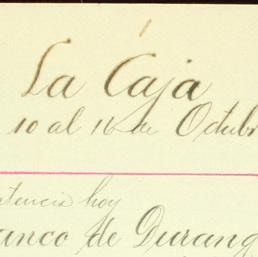 La Caja
10 al 16 de Octubr
stencia hoy
anco de Durang